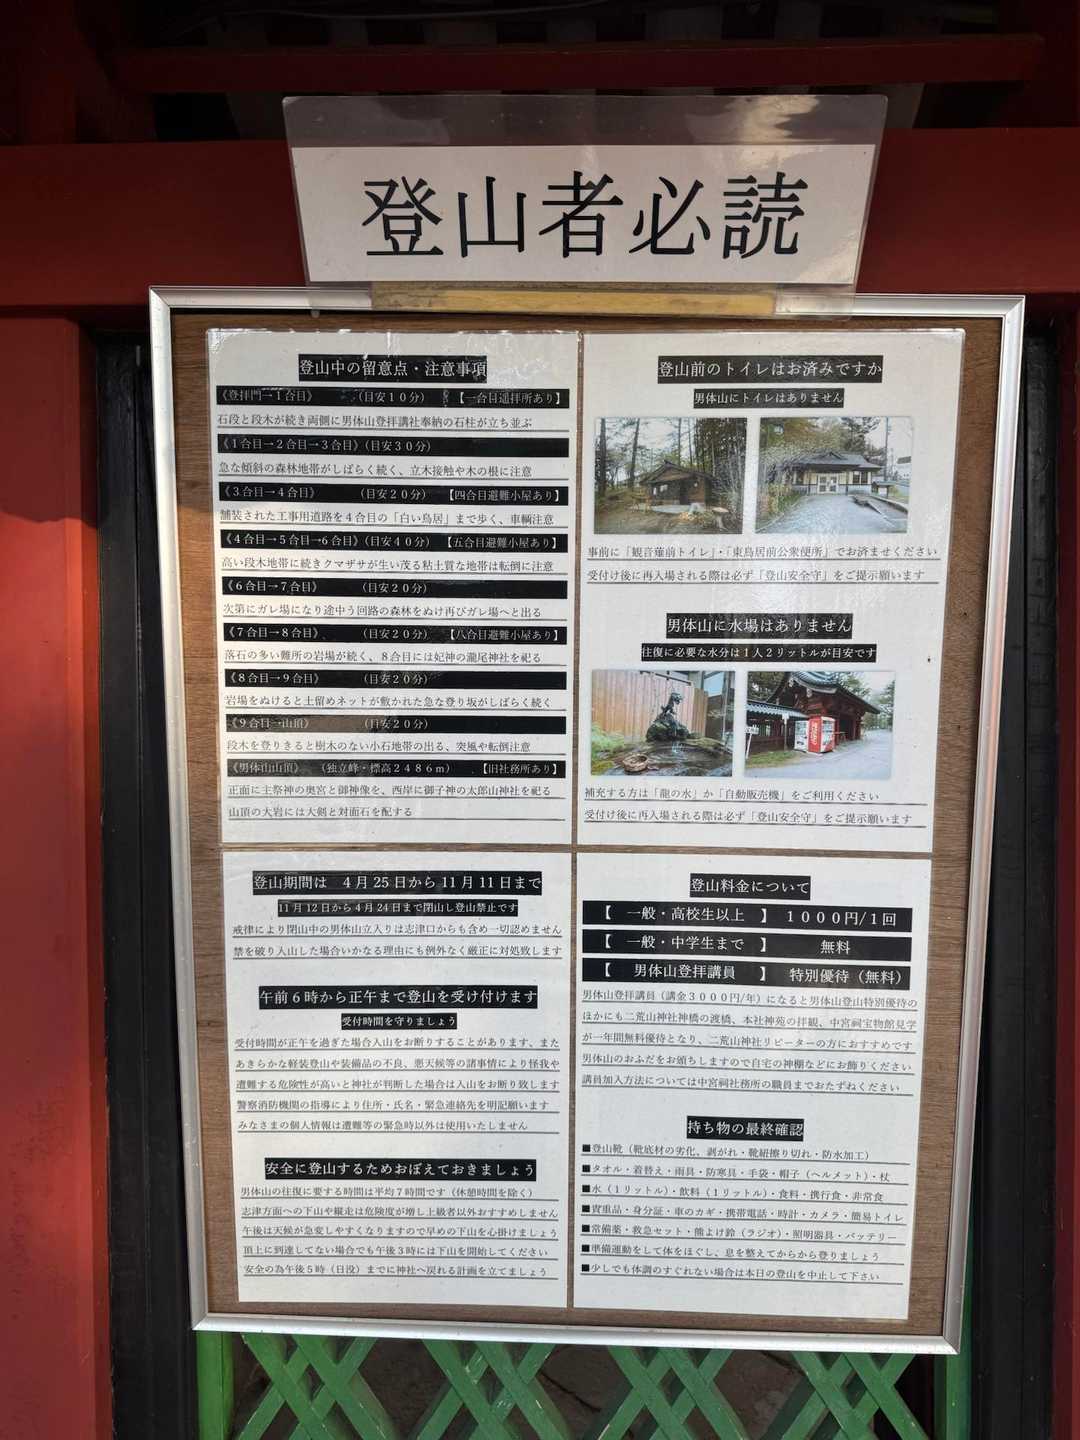 登山者必読
登山中の留意点・注意事項
《登拝門→1合目》 （目安10分） 【一合目遥拝所あり】
石段と段木が続き両側に男体山登拝講社奉納の石柱が立ち並ぶ
《1合目→2合目→3合目》（目安30分）
急な傾斜の森林地帯がしばらく続く、立木接触や木の根に注意
《3合目→4合目》 （目安20分） 【四合目避難小屋あり】
舗装された工事用道路を4合目の「白い鳥居」まで歩く、車輌注意
《4合目→5合目→6合目》（目安40分）【五合目避難小屋あり】
高い段木地帯に続きクマザサが生い茂る粘土質な地帯は転倒に注意
《6合目→7合目》 （目安20分）
次第にガレ場になり途中う回路の森林をぬけ再びガレ場へと出る
《7合目→8合目》 （目安20分） 【八合目避難小屋あり】
落石の多い難所の岩場が続く、8合目には妃神の瀧尾神社を祀る
《8合目→9合目》 （目安20分）
岩場をぬけると土留めネットが敷かれた急な登り坂がしばらく続く
《9合目→山頂》 （目安20分）
段木を登りきると樹木のない小石地帯の出る、突風や転倒注意
《男体山山頂》 （独立峰・標高2486m） 【旧社務所あり】
正面に主祭神の奥宮と御神像を、西岸に御子神の太郎山神社を祀る
山頂の大岩には大剣と対面石を配する
登山前のトイレはお済みですか
男体山にトイレはありません
事前に「観音薙前トイレ」・「東鳥居前公衆便所」でお済ませください
受付け後に再入場される際は必ず「登山安全守」をご提示願います
男体山に水場はありません
往復に必要な水分は1人2リットルが目安です
補充する方は「龍の水」か「自動販売機」をご利用ください
受付け後に再入場される際は必ず「登山安全守」をご提示願います
登山期間は 4月25日から11月11日まで
11月12日から4月24日まで閉山し登山禁止です
戒律により閉山中の男体山立入りは志津口からも含め一切認めません
禁を破り入山した場合いかなる理由にも例外なく厳正に対処致します
午前6時から正午まで登山を受け付けます
受付時間を守りましょう
受付時間が正午を過ぎた場合入山をお断りすることがあります、また
あきらかな軽装登山や装備品の不良、悪天候等の諸事情により怪我や
遭難する危険性が高いと神社が判断した場合は入山をお断り致します
警察消防機関の指導により住所・氏名・緊急連絡先を明記願います
みなさまの個人情報は遭難等の緊急時以外は使用いたしません
安全に登山するためおぼえておきましょう
男体山の往復に要する時間は平均7時間です（休憩時間を除く）
志津方面への下山や縦走は危険度が増し上級者以外おすすめしません
午後は天候が急変しやすくなりますので早めの下山を心掛けましょう
頂上に到達してない場合でも午後3時には下山を開始してください
安全の為午後5時（日没）までに神社へ戻れる計画を立てましょう
登山料金について
【 一般・高校生以上 】 1000円/1回
【 一般・中学生まで 】 無料
【 男体山登拝講員 】 特別優待（無料）
男体山登拝講員（講金3000円/年）になると男体山登山特別優待の
ほかにも二荒山神社神橋の渡橋、本社神苑の拝観、中宮祠宝物館見学
が一年間無料優待となり、二荒山神社リピーターの方におすすめです
男体山のおふだをお頒ちしますので自宅の神棚などにお飾りください
講員加入方法については中宮祠社務所の職員までおたずねください
持ち物の最終確認
■登山靴（靴底材の劣化、剥がれ・靴紐擦り切れ・防水加工）
■タオル・着替え・雨具・防寒具・手袋・帽子（ヘルメット）・杖
■水（1リットル）・飲料（1リットル）・食料・携行食・非常食
■貴重品・身分証・車のカギ・携帯電話・時計・カメラ・簡易トイレ
■常備薬・救急セット・熊よけ鈴（ラジオ）・照明器具・バッテリー
■準備運動をして体をほぐし、息を整えてからから登りましょう
■少しでも体調のすぐれない場合は本日の登山を中止して下さい